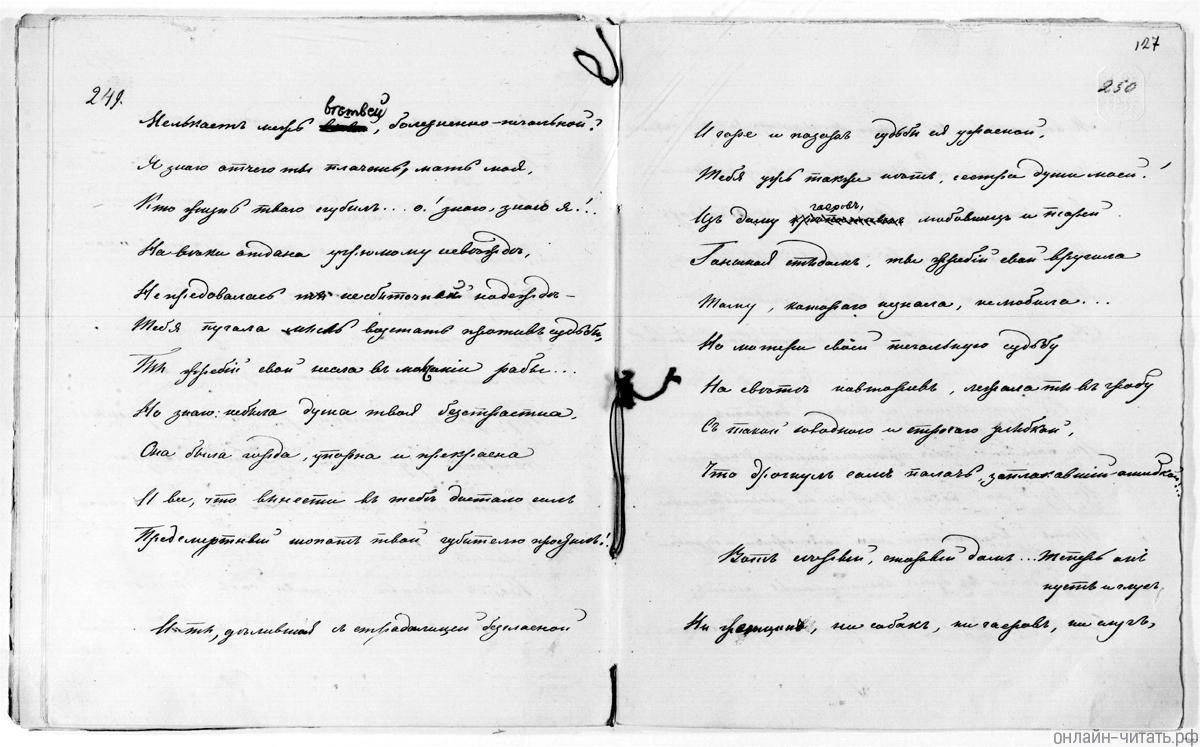 249.
вѣтвей
Мелькаетъ межъ , болѣзненно-печальной?
Я знаю отчего ты плачешь, мать моя,
Кто жизнь твою сгубилъ... о! знаю, знаю я!..
На вѣки отдана угрюмому невѣждѣ,
Не предовалась ты несбыточной надеждѣ –
Тебя пугала мысль возстать противъ судьбы,
Ты жребій свой несла въ молчаніи рабы...
Но знаю: небыла душа твоя безстрастна,
Она была горда, упорна и прекрасна
И все, что вынести въ тебѣ достало силъ
Предсмертный шопотъ твой губителю простилъ!
И ты, дѣлившая съ страдалицей безгласной
127
250
И горе и позоръ судьбы ея ужасной,
Тебя ужъ также нѣтъ, сестра души моей!
гаеровъ,
Изъ дому любовницъ и псарей
Гонимая стыдомъ, ты жребій свой вручила
Тому, котораго незнала, нелюбила...
Но матери своей печальную судьбу
На свѣтѣ повторивъ, лежала ты въ гробу
Съ такой холодною и строгою улыбкой,
Что дрогнулъ самъ палачъ, заплакавшій ошибкой...
Вотъ сѣрый, старый домъ... Теперь онъ
пустъ и глухъ,
Ни женщинъ, ни собакъ, ни гаеровъ, ни слугъ,
онлайн-читать.рф